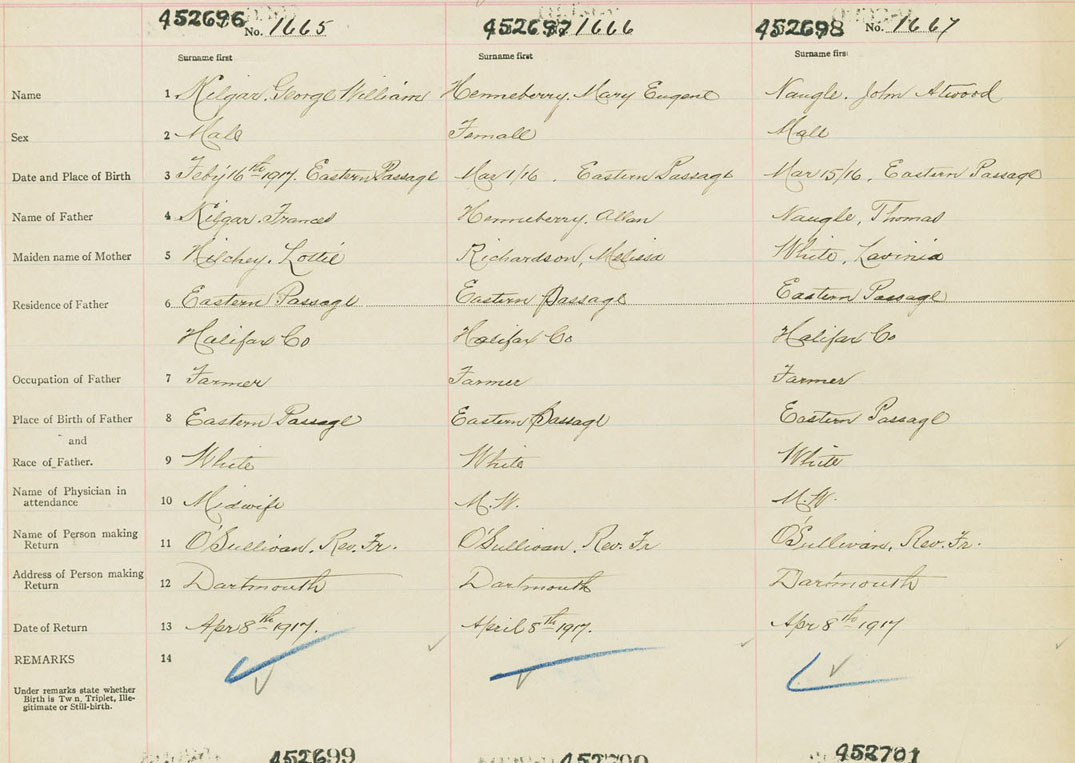 452696 No. 1665 452697 No. 1666 452698 No. 1667
Surname first Surname first Surname first
Name 1 Kilgar, George William Henneberry, Mary Eugene Naugle, John Atwood
Sex 2 Male Female Male
Date and Place of Birth 3 Feb'y 16th 1917. Eastern Passage Mar 1/16. Eastern Passage Mar 15/16, Eastern Passage
Name of Father 4 Kilgar, Frances Henneberry, Allan Naugle, Thomas
Maiden name of Mother 5 Hilchey, Lottie Richardson, Melissa White, Lavinia
Residence of Father 6 Eastern Passage Eastern Passage Eastern Passage
Halifax Co Halifax Co Halifax Co
Occupation of Father 7 Farmer Farmer Farmer
Place of Birth of Father 8 Eastern Passage Eastern Passage Eastern Passage
and
Race of Father. 9 White White White
Name of Physician in
attendance 10 Midwife M.W. M.W.
Name of Person making
Return 11 O'Sullivan, Rev. Fr. O'Sullivan, Rev. Fr O'Sullivan, Rev. Fr.
Address of Person making
Return 12 Dartmouth Dartmouth Dartmouth
Date of Return 13 Apr 8th 1917. April 8th 1917. Apr 8th 1917
REMARKS 14
Under remarks state whether
Birth is Tw n, Triplet, Ille-
gitimate or Still-birth.
452699 452700 452701